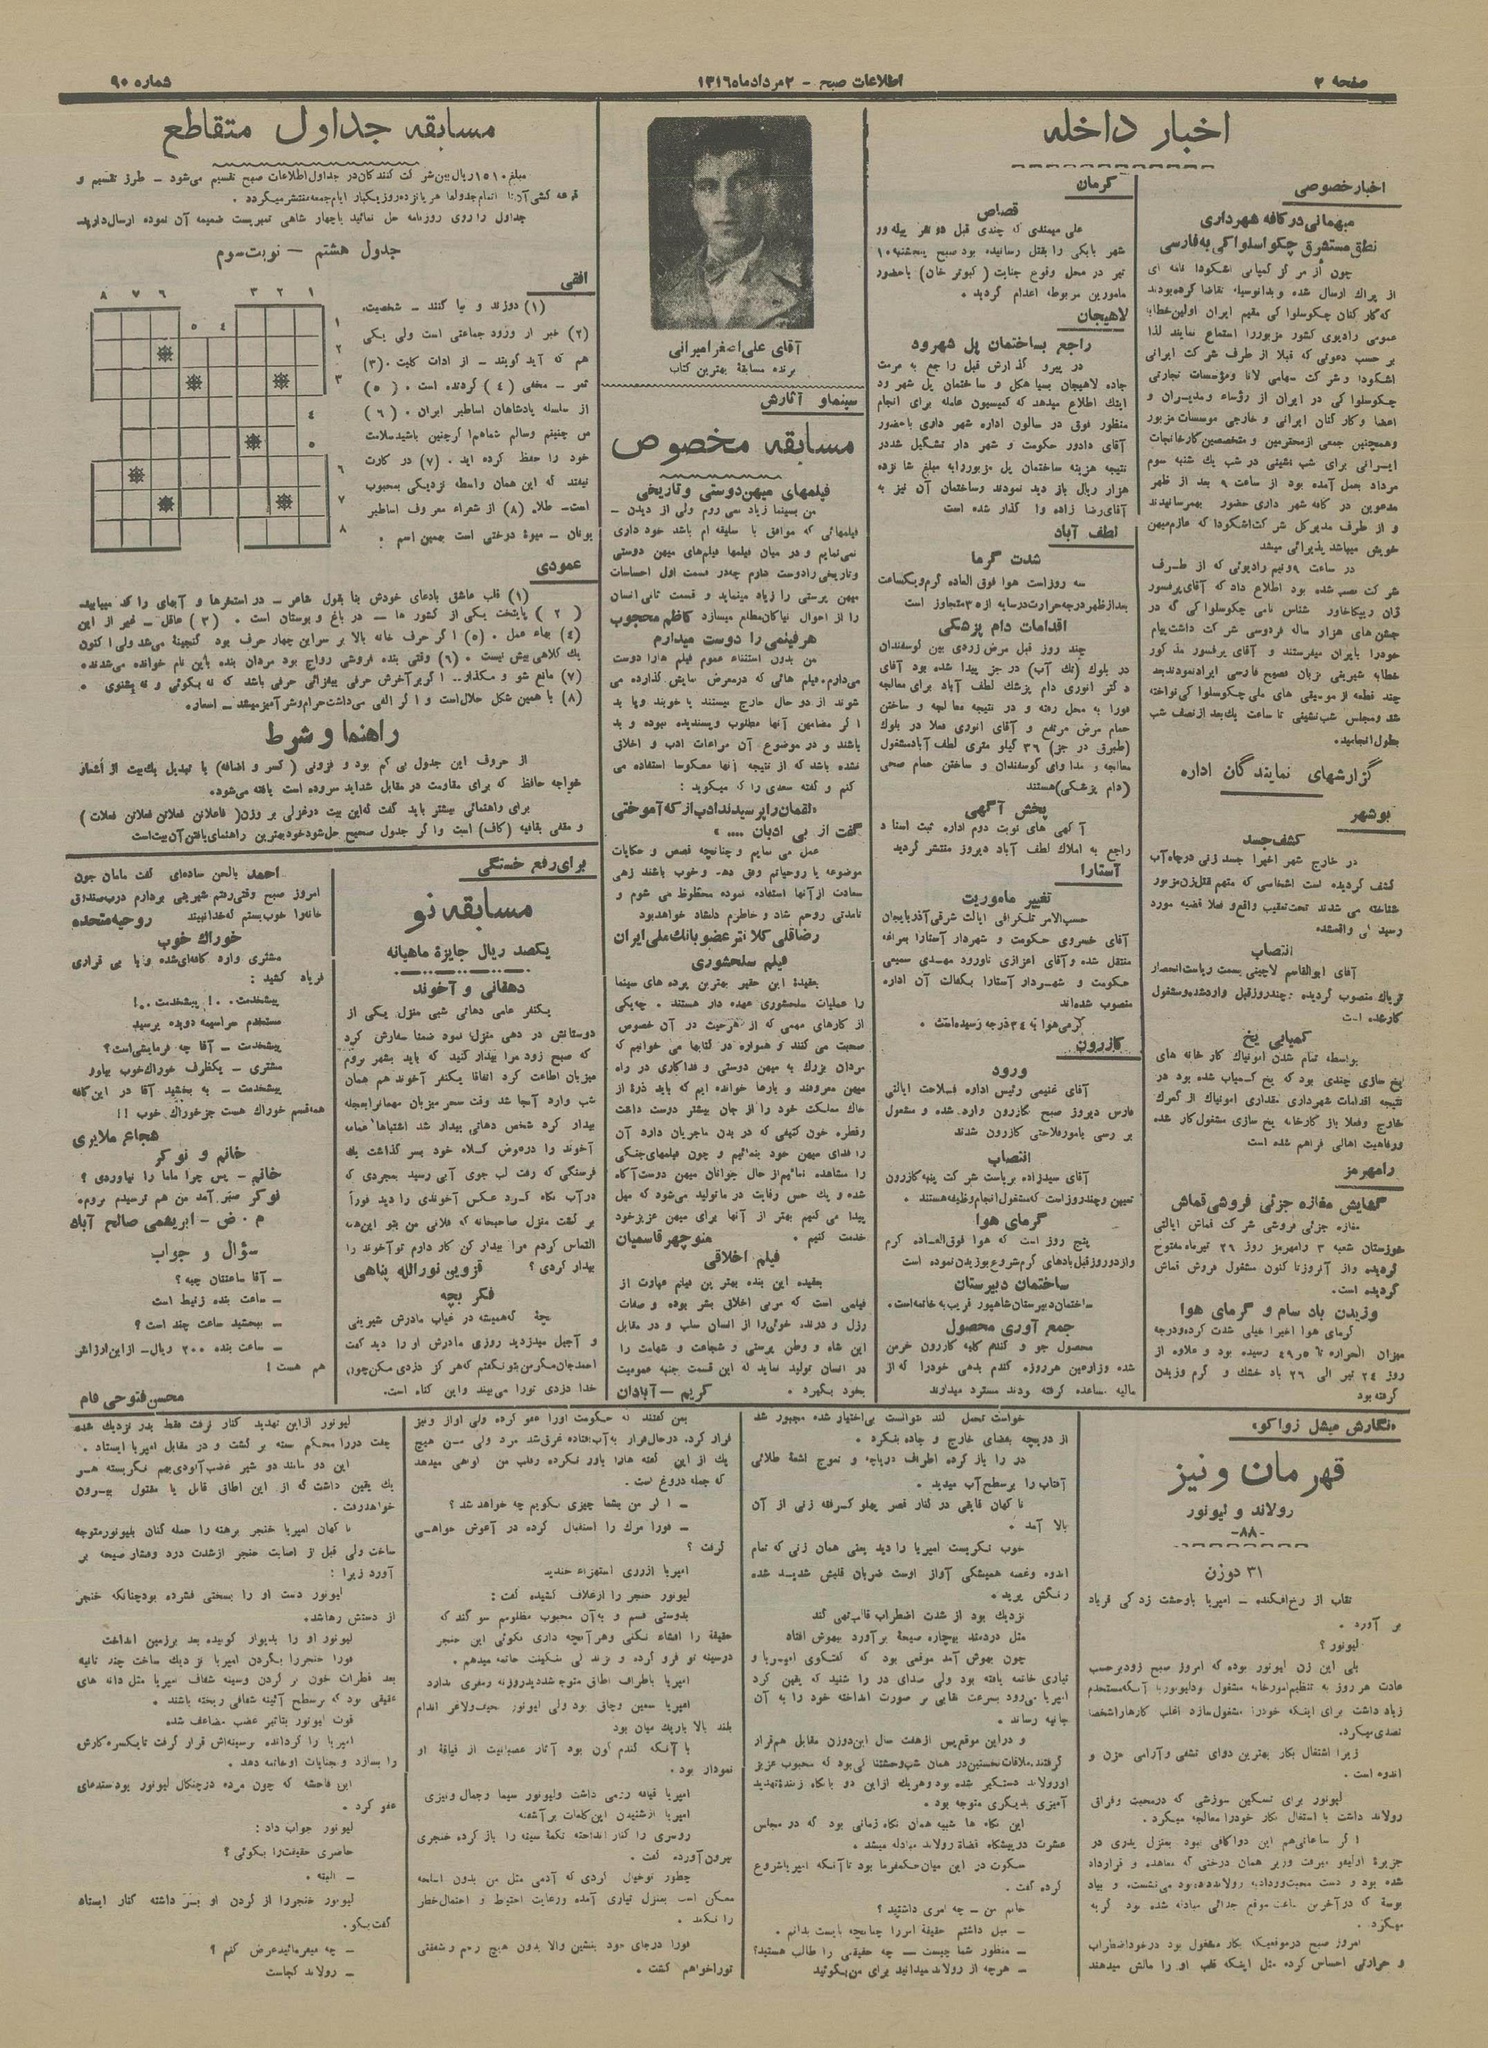 صفحه ۲
اطلاعات صبح - ۲ مرداد ماه ۱۳۱۶
شماره ۹۰
اخبار داخله
اخبار خصوصی
میهمانی در کافه شهرداری
نطق مستشرق چکو اسلواکی به فارسی
چون از مرکز کمپانی اشکودا نامه ای
از پراک ارسال شده و بدانوسیله تقاضا کرده بودند
که کارکنان چکوسلواکی مقیم ایران اولین خطابه
عمومی رادیوی کشور مزبور را استماع نمایند لذا
بر حسب دعوتی که قبلا از طرف شرکت ایرانی
اشکودا و شرکت سهامی لانا و مؤسسات تجارتی
چکوسلواکی در ایران از رؤساء و مدیران و
اعضا و کارکنان ایرانی و خارجی موسسات مزبور
وهمچنین جمعی از محترمین و متخصصین کارخانجات
ایرانی برای شب نشینی در شب یک شنبه سوم
مرداد بعمل آمده بود از ساعت ۹ بعد از ظهر
مدعوین در کافه شهر داری حضور بهمرسانیدند
و از طرف مدیر کل شرکت اشکودا که عازم میهن
خویش میباشد پذیرائی میشد
در ساعت ۹ ونیم رادیوئی که از طرف
شرکت نصب شده بود اطلاع داد که آقای پرفسور
ژان ریپکا خاور شناس نامی چکوسلواکی که در
جشن های هزار ساله فردوسی شرکت داشت پیام
خود را بایران میفرستند و آقای پرفسور مذکور
خطابه شیرینی بزبان فصیح فارسی ایراد نمودند بعد
چند قطعه از موسیقی های ملی چکوسلواکی نواخته
شد و مجلس شب نشینی تا ساعت یک بعد از نصف شب
بطول انجامید.
گزارشهای نمایندگان اداره
بوشهر
کشف جسد
در خارج شهر اخیرا جسد زنی در چاه آب
کشف گردیده است اشخاصی که متهم قتل زن مزبور
شناخته می شدند تحت تعقیب واقع و فعلا قضیه مورد
رسیدگی واقع شده.
انتصاب
آقای ابوالقاسم لاچینی بسمت ریاست انحصار
تریاک منصوب گردیده چند روز قبل وارد شده و مشغول
کار شده است
کمیابی یخ
بواسطه تمام شدن امونیاک کارخانه های
یخ سازی چندی بود که یخ کمیاب شده بود در
نتیجه اقدامات شهرداری مقداری امونیاک از گمرک
خارج و فعلا باز کارخانه یخ سازی مشغول کار شده
و رفاهیت اهالی فراهم شده است
رامهرمز
گشایش مغازه جزئی فروشی قماش
مغازه جزئی فروشی شرکت قماش ایالتی
خوزستان شعبه ۳ رامهرمز روز ۲۶ تیر ماه مفتوح
گردیده و از آنروز تاکنون مشغول فروش قماش
گردیده است.
وزیدن باد سام و گرمای هوا
گرمای هوا اخیرا خیلی شدت کرده و درجه
میزان الحراره تا ۵ر۴۹ رسیده بود و علاوه از
روز ۲۴ تیر الی ۲۶ باد خشک و گرم وزیدن
گرفته بود
کرمان
قصاص
علی میمندی که چندی قبل دو نفر پیله ور
شهر بابکی را بقتل رسانیده بود صبح پنجشنبه ۱۰
تیر در محل وقوع جنایت (کبوتر خان) با حضور
مامورین مربوطه اعدام گردید.
لاهیجان
راجع بساختمان پل شهرود
در پیرو گذارش قبل راجع به مرمت
جاده لاهیجان بسیاهکل و ساختمان پل شهر ود
اینک اطلاع میدهد که کمیسیون عامله برای انجام
منظور فوق در سالون اداره شهر داری با حضور
آقای دادور حکومت و شهر دار تشکیل شد در
نتیجه هزینه ساختمان پل مزبور را به مبلغ شانزده
هزار ریال باز دید نمودند و ساختمان آن نیز به
آقای رضا زاده وا گذار شده است
لطف آباد
شدت گرما
سه روز است هوا فوق العاده گرم و یکساعت
بعد از ظهر درجه حرارت در سایه از ۳۵ متجاوز است
اقدامات دام پزشکی
چند روز قبل مرض زردی بین گوسفندان
در بلوک (تک آب) در جز پیدا شده بود آقای
دکتر انوری دام پزشک لطف آباد برای معالجه
فورا به محل رفته و در نتیجه معالجه و ساختن
حمام مرض مرتفع و آقای انوری فعلا در بلوک
(طبرق در جز) ۳۶ کیلو متری لطف آباد مشغول
معالجه و مداوای گوسفندان و ساختن حمام صحی
(دام پزشکی) هستند
پخش آگهی
آگهی های نوبت دوم اداره ثبت اسناد
راجع به املاک لطف آباد دیروز منتشر گردید
آستارا
تغییر ماموریت
حسب الامر تلگرافی ایالت شرقی آذربایجان
آقای خسروی حکومت و شهردار آستارا بمراغه
منتقل شده و آقای اعزازی ناورود مهدی سمیعی
حکومت و شهردار آستارا بکفالت آن اداره
منصوب شده اند
گرمی هوا به ۳۴ درجه رسیده است.
کازرون
ورود
آقای غنیمی رئیس اداره فلاحت ایالتی
فارس دیروز صبح بکازرون وارد شده و مشغول
بررسی بامور فلاحتی کازرون شدند
انتصاب
آقای سیدزاده بریاست شرکت پنبه کازرون
تعیین و چند روز است که مشغول انجام وظیفه هستند.
گرمای هوا
پنج روز است که هوا فوق العاده گرم
و از دو روز قبل بادهای گرم شروع بوزیدن نموده است
ساختمان دبیرستان
ساختمان دبیرستان شاهپور قریب به خاتمه است.
جمع آوری محصول
محصول جو و گندم کلیه کازرون خرمن
شده و زارعین هر روزه گندم بدهی خود را که از
مالیه مساعده گرفته بودند مسترد میدارند
آقای علی اصغر امیرانی
برنده مسابقهٔ بهترین کتاب
سینما و آثارش
مسابقه مخصوص
فیلمهای میهن دوستی و تاریخی
من بسینما زیاد نمی روم ولی از دیدن -
فیلمهائی که موافق با سلیقه ام باشد خود داری
نمی نمایم و در میان فیلمها فیلم های میهن دوستی
و تاریخی را دوست دارم چه در قسمت اول احساسات
میهن پرستی را زیاد مینماید و قسمت ثانی انسان
را از احوال نیاکان مطلع میسازد کاظم محجوب
هر فیلمی را دوست میدارم
من بدون استثناء عموم فیلم ها را دوست
می دارم. فیلم هائی که در معرض نمایش گذارده می
شوند از دو حال خارج نیستند یا خوبند و یا بد
اگر مضامین آنها مطلوب و پسندیده نبوده و بد
باشند و در موضوع آن مراعات ادب و اخلاق
نشده باشد که از نتیجه آنها معکوسا استفاده می
کنم و گفته سعدی را که میگوید:
«لقمان را پرسیدند ادب از که آموختی
گفت از بی ادبان ....»
عمل می نمایم و چنانچه قصص و حکایات
موضوعه با روحیاتم وفق دهد و خوب باشند زهی
سعادت از آنها استفاده نموده محظوظ می شوم و
تا مدتی روحم شاد و خاطرم دلشاد خواهد بود
رضاقلی کلانتر عضو بانک ملی ایران
فیلم سلحشوری
بعقیدهٔ این حقیر بهترین پرده های سینما
را عملیات سلحشوری عهده دار هستند. چه یکی
از کارهای مهمی که از هر حیث در آن خصوص
صحبت می کنند و همواره در کتابها می خوانیم که
مردان بزرگ به میهن دوستی و فداکاری در راه
میهن معروفند و بارها خوانده ایم که باید ذرهٔ از
خاک مملکت خود را از جان بیشتر دوست داشت
و قطره خون کثیفی که در بدن ما جریان دارد آن
را فدای میهن خود بنمائیم و چون فیلمهای جنگی
را مشاهده نمائیم از حال جوانان میهن دوست آگاه
شده و یک حس رقابت در ما تولید می شود که میل
پیدا می کنیم بهتر از آنها برای میهن عزیز خود
خدمت کنیم. منوچهر قاسمیان
فیلم اخلاقی
بعقیده این بنده بهترین فیلم عبارت از
فیلمی است که مربی اخلاق بشر بوده و صفات
رزل و درنده خوئی را از انسان سلب و در مقابل
این شاه و وطن پرستی و شجاعت و شهامت را
در انسان تولید نماید له این قسمت جنبه عمومیت
بخود بگیرد. کریم - آبادان
مسابقه جداول متقاطع
مبلغ ۱۵۱۰ ریال بین شرکت کنندگان در جداول اطلاعات صبح تقسیم می شود - طرز تقسیم و
قرعه کشی آن با اتمام جدولها هر پانزده روز یکبار ایام جمعه منتشر میگردد.
جداول را روی روزنامه حل نمائید با چهار شاهی تمبر پست ضمیمه آن نموده ارسال دارید.
جدول هشتم - نوبت سوم
افقی
(۱) دوزند و بپا کنند - شخصیت.
(۲) خبر از ورود جماعتی است ولی یکی
هم که آید گویند - از ادات کلیت. (۳)
ثمر - مخفی (۴) گردنده است. (۵)
از سلسله پادشاهان اساطیر ایران. (۶)
من چنینم و سالم شما هم اگر چنین باشید سلامت
خود را حفظ کرده اید. (۷) در کارت
نیفتد که این همان واسطه نزدیکی بمحبوب
است - طلا. (۸) از شعراء معروف اساطیر
یونان - میوهٔ درختی است بهمین اسم.
۱ ۲ ۳ ۴ ۵ ۶ ۷ ۸
۱
۲
۳
۴
۵
۶
۷
۸
عمودی
(۱) قلب عاشق بادعای خودش بنا بقول شاعر - در استخرها و آبهای راکد میبابید.
(۲) پایتخت یکی از کشور ها - در باغ و بوستان است. (۳) عاقل - غیر از این
(۴) بجاء عمل. (۵) اگر حرف خانه بالا بر سر این چهار حرف بود گنجینه می شد ولی اکنون
یک کلاهی بیش نیست. (۶) وقتی بنده فروشی رواج بود مردان بنده باین نام خوانده می شدند.
(۷) مانع شو و مگذار.. اگر بر آخرش حرفی بیفزائی حرفی باشد که نه بگوئی و نه بشنوی.
(۸) با همین شکل حلال است و اگر الفی می داشت حرام و شر آمیز میشد - اسعار.
راهنما و شرط
از حروف این جدول بی کم بود و فزونی (کسر و اضافه) یا تبدیل یک بیت از اشعار
خواجه حافظ که برای مقاومت در مقابل شداید سروده است یافته می شود.
برای راهنمائی بیشتر باید گفت که این بیت در غزلی بر وزن (فاعلاتن فعلاتن فعلاتن فعلات)
و مقفی بقافیه (کاف) است و اگر جدول صحیح حل شود خود بهترین راهنمای یافتن آن بیت است
برای رفع خستگی
مسابقه نو
یکصد ریال جایزهٔ ماهیانه
دهقانی و آخوند
یکنفر عامی دهاتی شبی منزل یکی از
دوستانش در دهی منزل نمود ضمنا سفارش کرد
که صبح زود مرا بیدار کنید که باید بشهر بروم
میزبان اطاعت کرد اتفاقا یکنفر آخوند هم همان
شب وارد آنجا شد وقت سحر میزبان مهمانرا بعجله
بیدار کرد شخص دهاتی بیدار شد اشتباها عمامه
آخوند را در عوض کلاه خود بسر گذاشت یک
فرسنگی که رفت لب جوی آبی رسید بمجردی که
در آب نگاه کرد عکس آخوندی را دید فوراً
برگشت منزل صاحبخانه که فلانی من بتو اینهمه
التماس کردم مرا بیدار کن کار دارم تو آخوند را
بیدار کردی؟ قزوین نورالله پناهی
فکر بچه
بچهٔ که همیشه در غیاب مادرش شیرینی
و آجیل میدزدید روزی مادرش او را دید گفت
احمد جان مگر من بتو نگفتم که هر کز دزدی مکن چون
خدا دزدی تو را می بیند و این گناه است.
احمد بالحن ساده ای گفت مامان جون
امروز صبح وقتی رفتم شیرینی بردارم درب صندوق
خانه را خوب بستم که خدا نبیند روحیه متحده
خوراک خوب
مشتری وارد کافه ای شده و با بی قراری
فریاد کشید:
پیشخدمت..! پیشخدمت..!
مستخدم سراسیمه دویده پرسید
پیشخدمت - آقا چه فرمایشی است؟
مشتری - یکظرف خوراک خوب بیاور
پیشخدمت - به بخشید آقا در این کافه
همه قسم خوراک هست جز خوراک خوب !!
شجاع ملایری
خانم و نوکر
خانم - پس چرا ماما را نیاوردی؟
نوکر صبر آمد من هم ترسیدم بروم.
م. ض - ابریهمی صالح آباد
سؤال و جواب
- آقا ساعتتان چیه؟
- ساعت بنده زنیط است
- ببخشید ساعت چند است؟
- ساعت بنده ۲۰۰ ریال - از این ارزانتر
هم هست!
محسن فتوحی فام
«نگارش میشل زواکو»
قهرمان ونیز
رولاند و لیونور
-۸۸-
۳۱ دوزن
نقاب از رخ افکنده - امپریا با وحشت زدگی فریاد
بر آورد.
لیونور؟
بلی این زن لیونور بوده که امروز صبح زود بر حسب
عادت هر روز به تنظیم امور خانه مشغول بود لیونور با آنکه مستخدم
زیاد داشت برای اینکه خود را مشغول سازد اغلب کارها را شخصا
تصدی میکرد.
زیرا اشتغال بکار بهترین دوای تشفی و آرامی حزن و
اندوه است.
لیونور برای تسکین سوزشی که در محبت و فراق
رولاند داشت با اشتغال بکار خود را معالجه میکرد.
اگر ساعاتی هم این دوا کافی نبود بمنزل پدری در
جزیرهٔ اولیفو میرفت و زیر همان درختی که معاهده و قرارداد
شده بود و دست محبت و وداد به رولاند داده بود می نشست و بیاد
بوسهٔ که در آخرین ساعت موقع جدائی مبادله شده بود گریه
میکرد.
امروز صبح در موقعیکه بکار مشغول بود در خود اضطراب
و حرارتی احساس کرده مثل اینکه قلب او را مالش میدهند
خواست تحمل کند نتوانست بی اختیار شده مجبور شد
از دریچه بفضای خارج و جاده بنگرد.
در را باز کرده اطراف دریاچه و تموج اشعهٔ طلائی
آفتاب را بر سطح آب میدید.
ناگهان قایقی در کنار قصر پهلو گرفته زنی از آن
بالا آمد.
خوب نگریست امپریا را دید یعنی همان زنی که تمام
اندوه وغصه همیشگی آواز اوست ضربان قلبش شدید شده
رنگش پرید.
نزدیک بود از شدت اضطراب قالب تهی کند
مثل دردمند بیچاره صیحهٔ بر آورد بیهوش افتاد
چون بهوش آمد موقعی بود که گفتگوی امپریا و
تیاری خاتمه یافته بود ولی صدای در را شنید که یقین کرد
امپریا می رود بسرعت نقابی بر صورت انداخته خود را به آن
جا نیه رساند.
و در این موقع پس از هفت سال این دوزن مقابل هم قرار
گرفتند. ملاقات نخستین در همان شب وحشتناکی بود که محبوب عزیز
او رولاند دستگیر شده بود و هریک از این دو با نگاه زنندهٔ تهدید
آمیزی بدیگری متوجه بود.
این نگاه ها شبیه همان نگاه زمانی بود که در مجلس
عشرت در پیشگاه قضاة رولاند مبادله میشد.
سکوت در این میان حکمفرما بود تا آنکه امپریا شروع
کرده گفت.
خانم من - چه امری داشتید؟
- میل داشتم حقیقة امر را چنانچه بایست بدانم.
- منظور شما چیست - چه حقیقتی را طالب هستید؟
- هرچه از رولاند میدانید برای من بگوئید
بمن گفتند که حکومت او را عفو کرده ولی او از ونیز
فرار کرد. در حال فرار به آب افتاده غرق شد مرد ولی من هیچ
یک از این گفته ها را باور نکرده و قلب من گواهی میدهد
که جمله دروغ است.
- اگر من بشما چیزی نگویم چه خواهد شد؟
- فورا مرگ را استقبال کرده در آغوش خواهی
گرفت؟
امپریا از روی استهزاء خندید
لیونور خنجر را از غلاف کشیده گفت:
بدوستی قسم و به آن محبوب مظلومم سوگند که
حقیقة را افشاء نکنی و هر آنچه داری نگوئی این خنجر
در سینه تو فرو کرده و بزندگی ننگینت خاتمه میدهم.
امپریا باطراف اطاق متوجه شد دید روزنه و مفری ندارد
امپریا سمین و چاق بود ولی لیونور نحیف و لاغر اندام
بلند بالا باریک میان بود
با آنکه گندم گون بود آثار عصبانیت از قیافهٔ او
نمودار بود.
امپریا قیافه رزمی داشت و لیونور سیما و جمال ونیزی
امپریا از شنیدن این کلمات بر آشفته
روسری را کنار انداخته تکمهٔ سینه را باز کرده خنجری
بیرون آورده گفت.
چطور تو خیال کردی که آدمی مثل من بدون اسلحه
ممکن است بمنزل تیاری آمده و رعایت احتیاط و احتمال خطر
را نکند.
فورا در جای خود بنشین والا بدون هیچ رحم و شفقتی
تو را خواهم کشت.
لیونور از این تهدید کنار نرفت فقط بدر نزدیک شده
جفت در را محکم بسته بر گشت و در مقابل امپریا ایستاد.
این دو مانند دو شیر غضب آلودی بهم نگریسته هر
یک یقین داشت که از این اطاق قاتل یا مقتول بیرون
خواهد رفت.
ناگهان امپریا خنجر برهنه را حمله کنان بلیونور متوجه
ساخت ولی قبل از اصابت خنجر از شدت درد و فشار صیحه بر
آورد زیرا:
لیونور دست او را بسختی فشرده بود چنانکه خنجر
از دستش رها شد.
لیونور او را بدیوار کوبیده بعد بر زمین انداخت
فورا خنجر را بگردن امپریا نزدیک ساخت چند ثانیه
بعد قطرات خون بر گردن و سینه شفاف امپریا مثل دانه های
عقیقی بود که بر سطح آئینه شفافی ریخته باشند.
قوت لیونور بتاثیر غضب مضاعف شده
امپریا را گردانده بر سینه اش قرار گرفت تا یکسره کارش
را بسازد و جنایات او خاتمه دهد.
این فاحشه که چون مرده در چنگال لیونور بود ستدعای
عفو کرد.
لیونور جواب داد:
حاضری حقیقت را بگوئی؟
- البته.
لیونور خنجر را از گردن او بر داشته کنار ایستاد
گفت بگو.
- چه میفرمائید عرض کنم؟
- رولاند کجاست